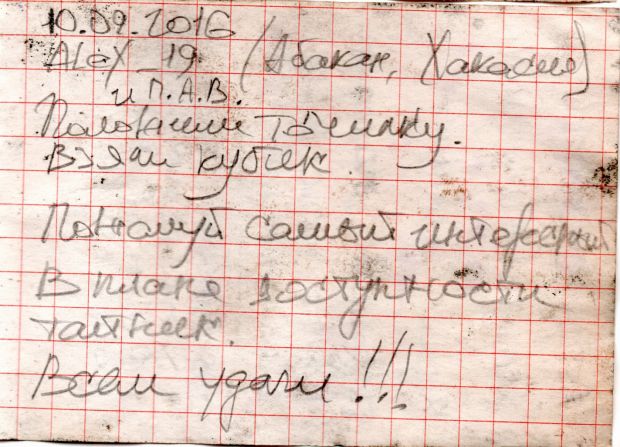 10.09.2016
Alex_19 (Абакан, Хакасия)
и П.А.В.
Положили точилку.
Взяли кубик.
Пожалуй самый интересный
В плане доступности
тайник.
Всем удачи!!!